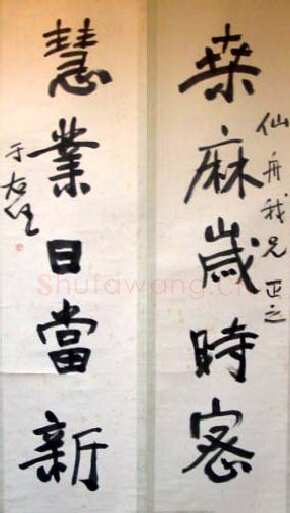 桒麻歲時密
仙舟我兄正之
慧業日當新
于右任
Shufawang.cn